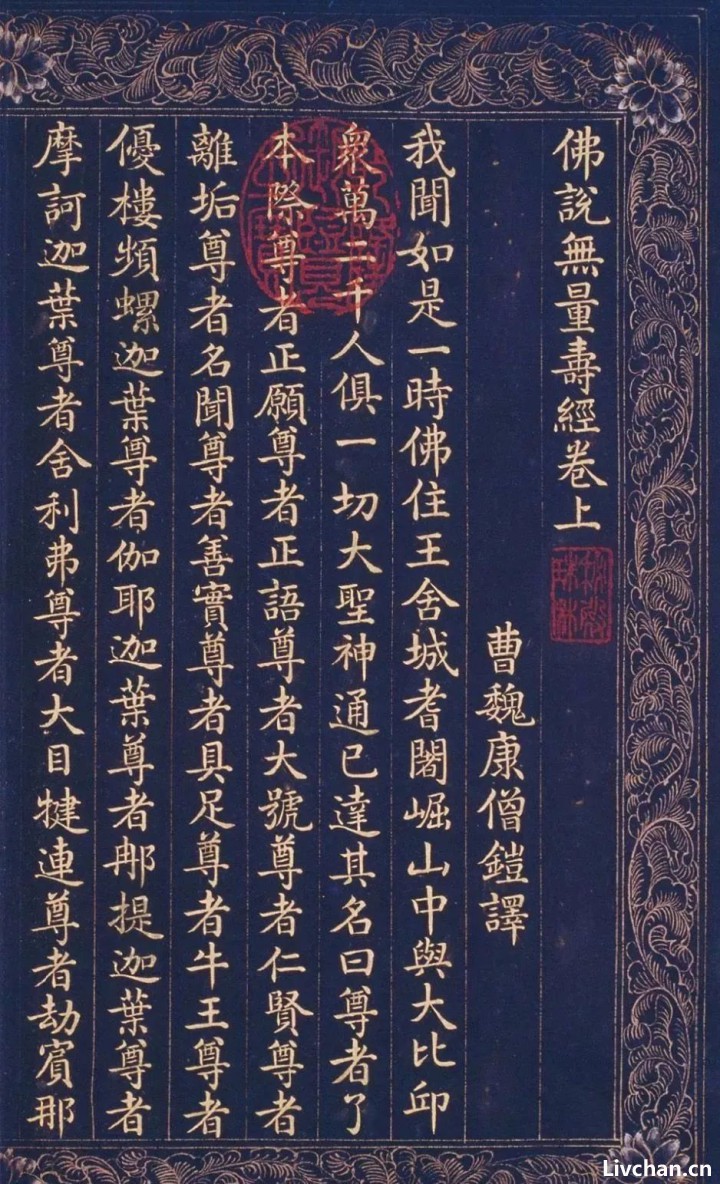 佛說無量壽經卷上
曹魏康僧鎧譯
我聞如是一時佛住王舍城耆闍崛山中與大比邱
衆萬二千人俱一切大聖神通已達其名曰尊者了
本際尊者正願尊者正語尊者大號尊者仁賢尊者
離垢尊者名聞尊者善實尊者具足尊者牛王尊者
優樓頻螺迦葉尊者伽耶迦葉尊者那提迦葉尊者
摩訶迦葉尊者舍利弗尊者大目犍連尊者劫賓那
Livchan.cn